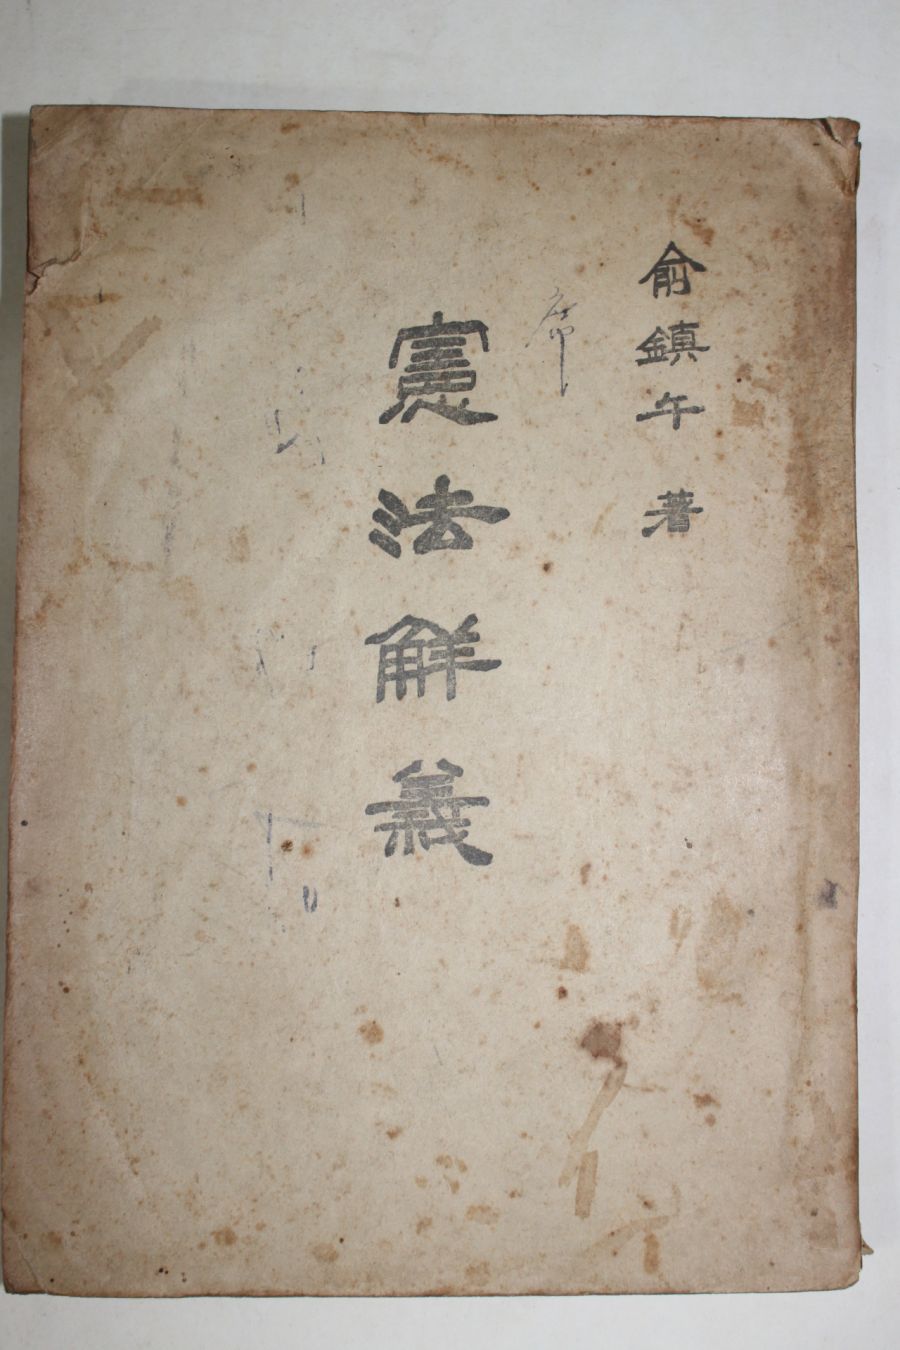 俞鎭午 著
憲法解義
席